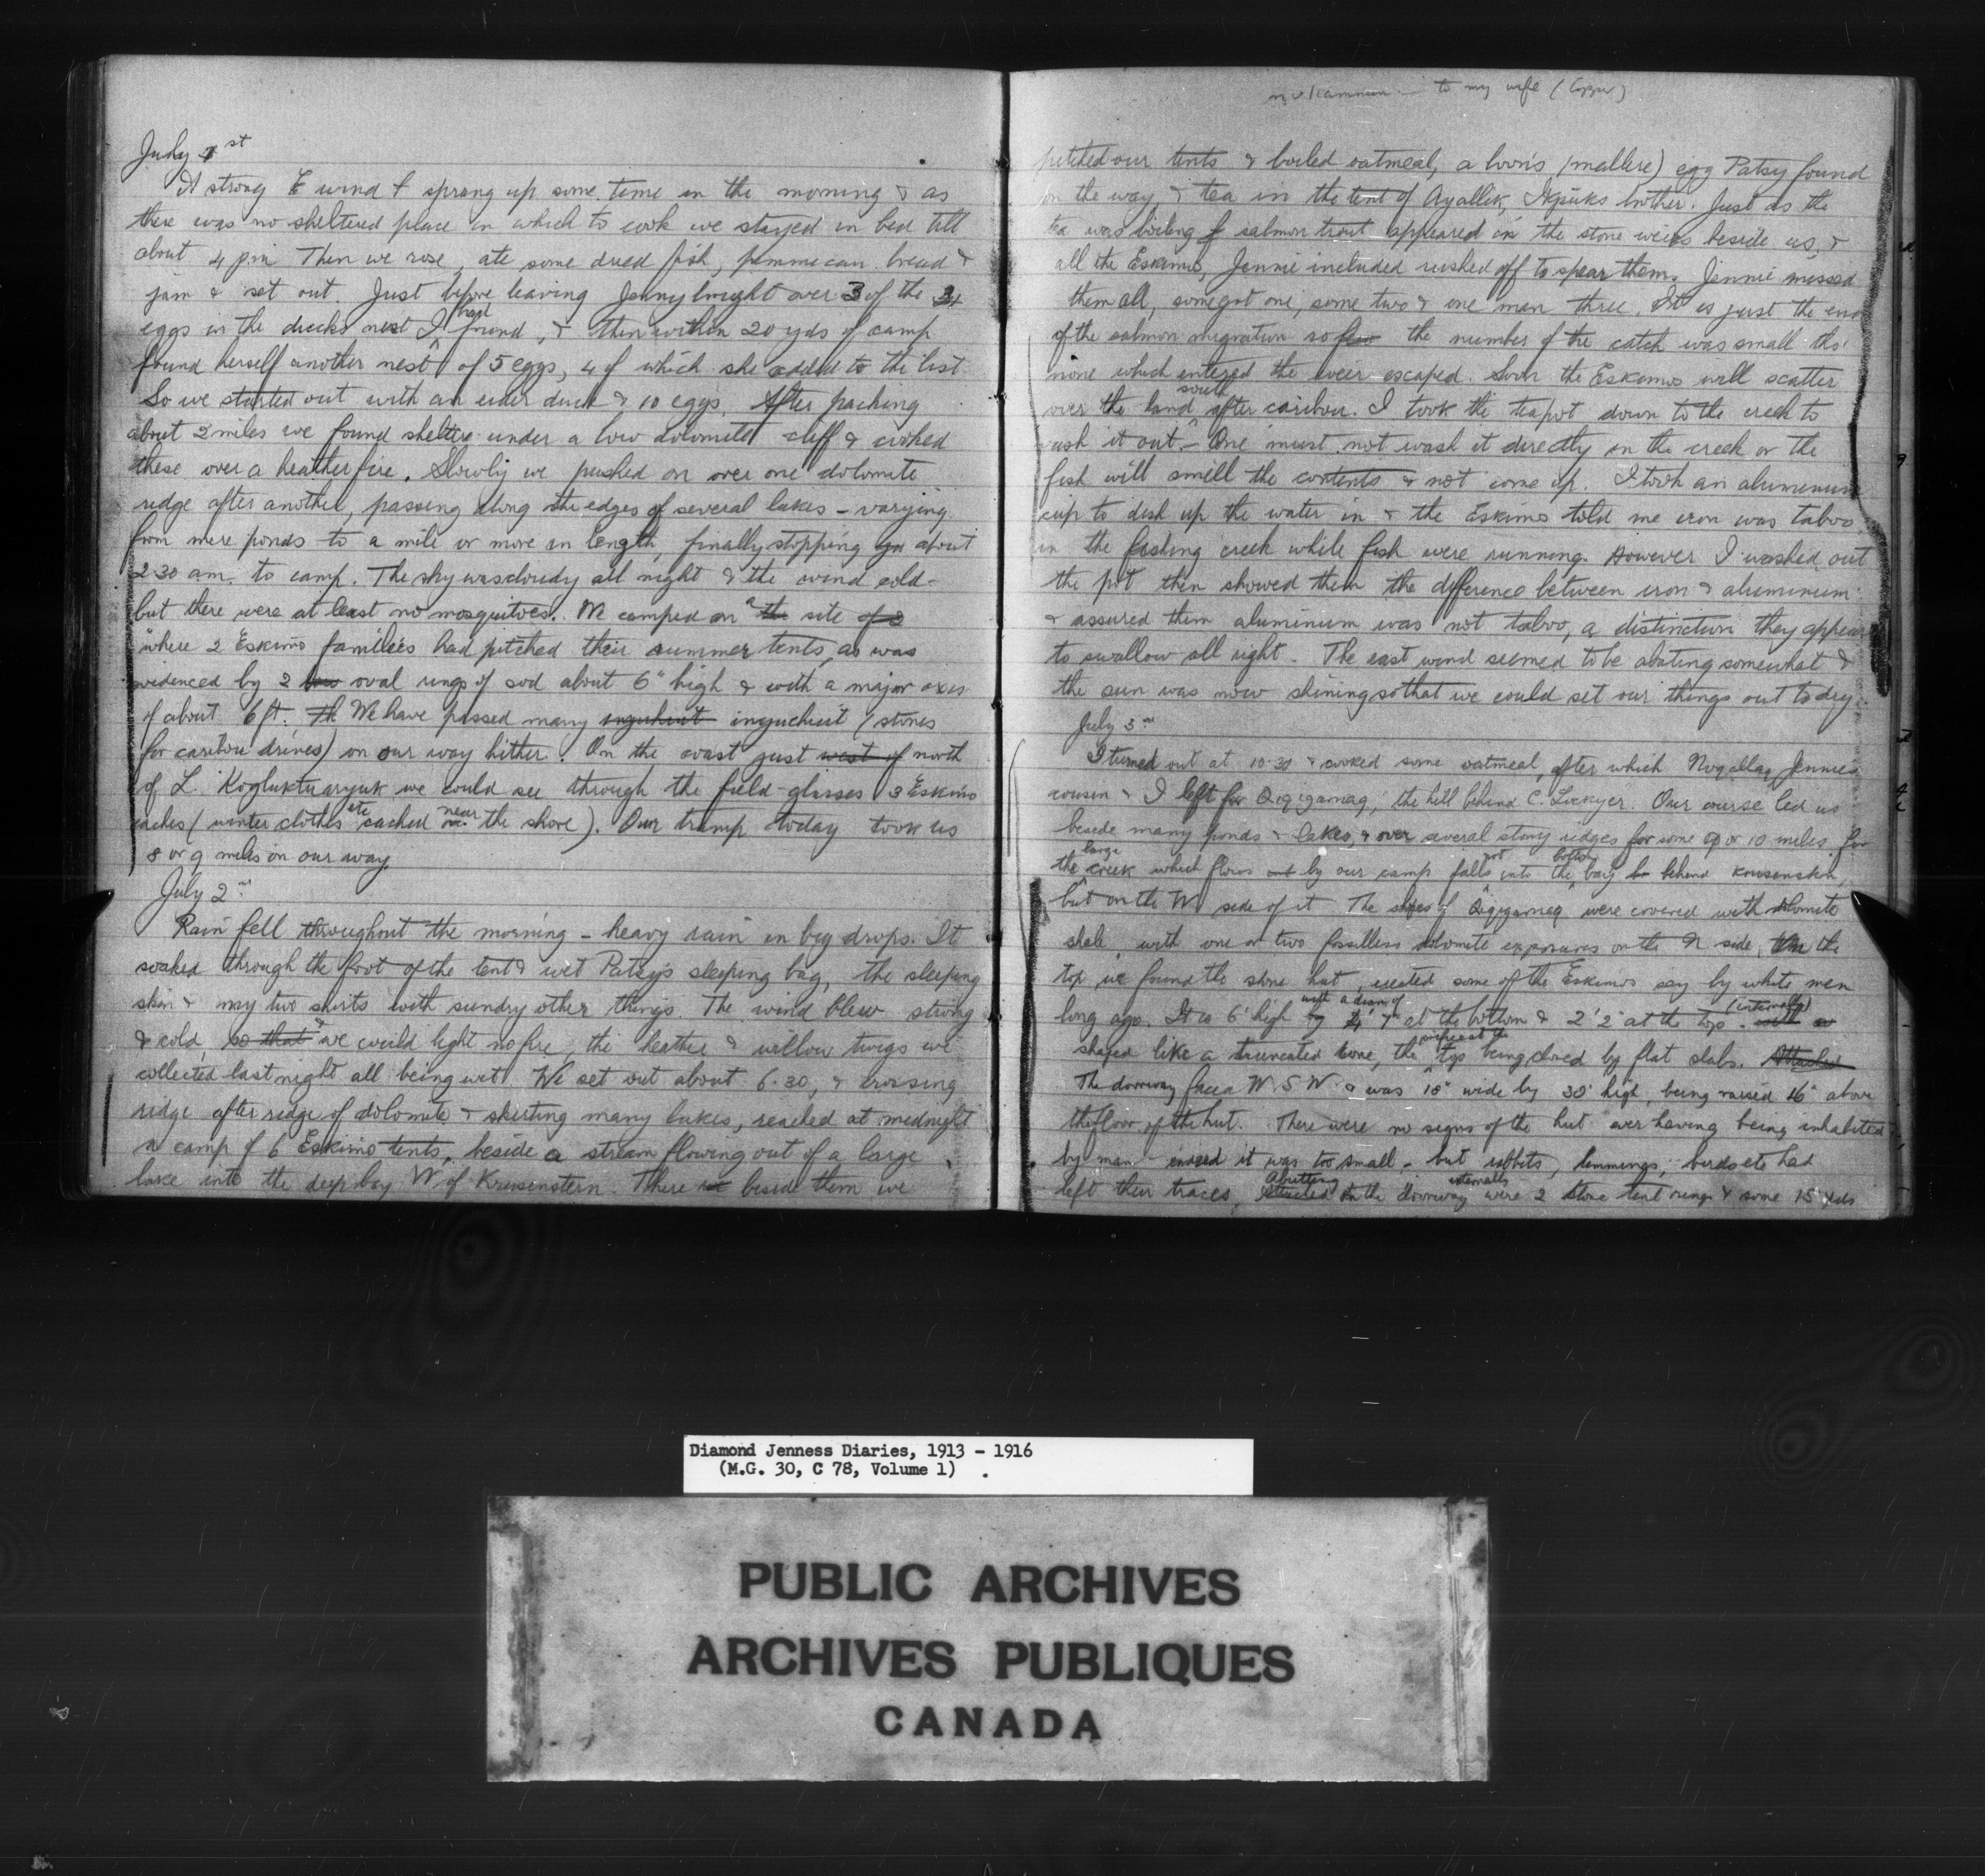 July 1st
A strong E wind sprang up some time in the morning & as
there was no sheltered place in which to cook we stayed in bed till
about 4 pm Then we rose, ate some dried fish, pemmican bread &
jam & set out. Just before leaving Jenny brought over 3 of the
eggs in the ducks nest I had found, & then within 20 yds of camp
found herself another nest of 5 eggs, 4 of which she added to the list.
So we started out with an eider duck & 10 eggs. After packing
about 2 miles we found shelter under a low dolomite cliff & cooked
these over a heather fire. Slowly we pushed on over one dolomite
ridge after another, passing along the edges of several lakes - varying
from mere ponds to a mile or more in length, finally stopping about
2.30 am. to camp. The sky was cloudy all night & the wind cold -
but there were at least no mosquitoes. We camped on a the site of 2
where 2 Eskimo families had pitched their summer tents, as was
evidenced by 2 oval rings of sod about 6" high & with a major axis
of about 6 ft. Th We have passed many inyuchuit (stones
for caribou drives) on our way hither. On the coast just west of north
of L. Kogluktuaryuk we could see through the field-glasses 3 Eskimo
caches (winter clothes etc cached near the shore). Our tramp today took us
8 or 9 miles on our way.
July 2nd
Rain fell throughout the morning - heavy rain in big drops. It
soaked through the foot of the tent & wet Patsy's sleeping bag, the sleeping
skin & my two shirts with sundry other things. The wind blew strong
& cold, so that & we could light no fire, the heather & willow twigs we
collected last night all being wet. We set out about 6.30, & crossing
ridge after ridge of dolomite & skirting many lakes, reached at midnight
a camp of 6 Eskimo tents, beside a stream flowing out of a large
lake into the deep bay W of Krusenstern. There beside them we
to my wife (Copper)
pitched our tents & boiled oatmeal, a loon's (mallere) egg Patsy found
on the way, & tea in the tent of Ayallik, Ikpuks brother. Just as the
tea was boiling salmon trout appeared in the stone weirs beside us, &
all the Eskimos, Jennie included rushed off to spear them. Jennie missed
them all, some got one, some two & one man three. It is just the end
of the salmon migration so few the number of the catch was small tho'
none which entered the weir escaped. Soon the Eskimos will scatter
over the land south after caribou. I took the teapot down to the creek to
wash it out. - One must not wash it directly in the creek or the
fish will smell the contents & not come up. I took an aluminum
cup to dish up the water in & the Eskimos told me iron was taboo
in the fishing creek while fish were running. However I washed out
the pot then showed them the difference between iron & aluminum
& assured them aluminium was not taboo, a distinction they appear
to swallow all right. The east wind seemed to be abating somewhat &
the sun was now shining so that we could set our things out to dry.
July 3rd
I turned out at 10.30 & cooked some oatmeal, after which Nogallaq Jennie's
cousin & I left for Qiqigarnaq, the hill behind C. Lockyer. Our course led us
beside many ponds & lakes, & over several stony ridges for some 9 or 10 miles, for
the large creek which flows out by our camp falls not into the bottom bay behind Krusenstern,
but on the W side of it. The slopes of Qiqigarnaq were covered with dolomite
shale, with one or two fossilless dolomite exposures on the N. side. On the
top we found the stone hut, erected some of the Eskimos say by white men
long ago. It is 6' high with a diam. of 4' 7" at the bottom & 2' 2" at the top (internally).
shaped like a truncated cone, the top being closed by flat slabs. Attached
The doorway faced W.S.W. & was 18" wide by 30" high, being raised 16" above
the floor of the hut. There were no signs of the hut ever having being inhabited
by man - indeed it was too small - but rabbits, lemmings, birds etc had
left their traces, Attached Abutting on the doorway externally were 2 stone tent rings & some 15 yds
Diamond Jenness Diaries, 1913 - 1916
(M.G. 30, C 78, Volume 1)
PUBLIC ARCHIVES
ARCHIVES PUBLIQUES
CANADA